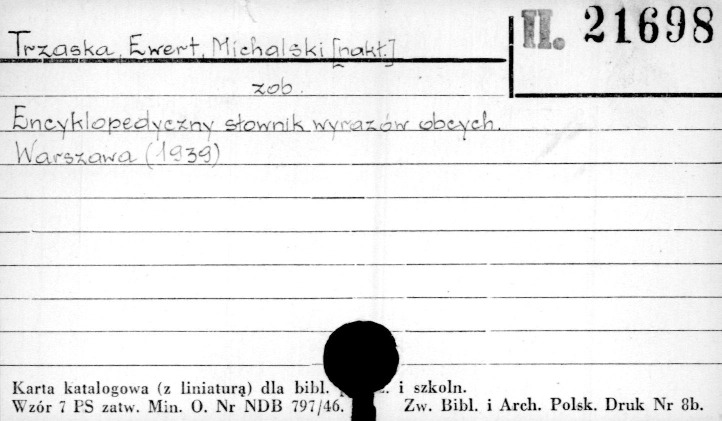 Trzaska, Ewert, Michalski [nakł.]
II. 21698
zob.
Encyklopedyczny słownik wyrazów obcych.
Warszawa (1939)
Karta katalogowa (z liniaturą) dla bibl. i szkoln.
Wzór 7 PS zatw. Min. O. Nr NDB 797/46. Zw. Bibl. i Arch. Polsk. Druk Nr 8b.